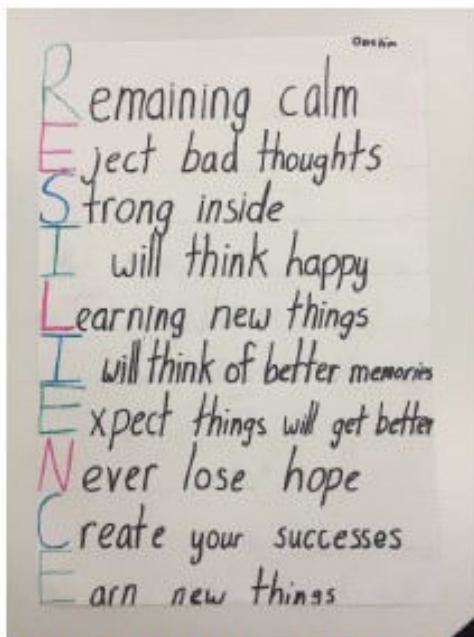 Remaining calm
Eject bad thoughts
Strong inside
I will think happy
Learning new things
I will think of better memories
Expect things will get better
Never lose hope
Create your successes
Earn new things